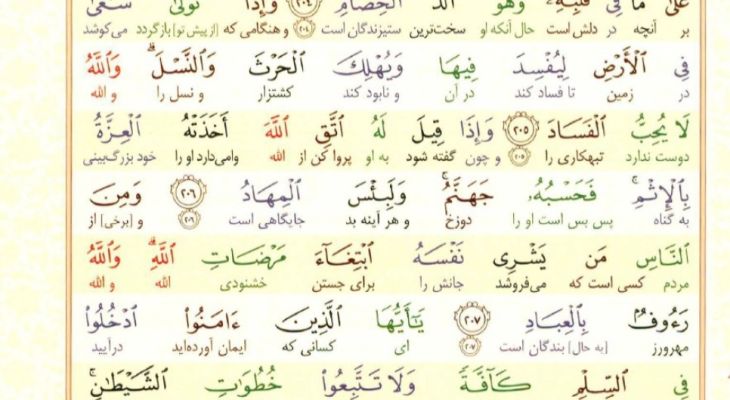 عَلَىٰ مَا فِي قَلْبِهِ وَهُوَ أَلَدُّ ٱلْخِصَامِ ٢٠٤ وَإِذَا تَوَلَّىٰ سَعَىٰ
بر آنچه در دلش است حال آنکه او سخت‌ترین ستیزندگان است ٢٠٤ و هنگامی که [از پیش تو] بازگردد می‌کوشد
فِي ٱلْأَرْضِ لِيُفْسِدَ فِيهَا وَيُهْلِكَ ٱلْحَرْثَ وَٱلنَّسْلَ ۗ وَٱللَّهُ
در زمین تا فساد کند در آن و نابود کند کشتزار و نسل را و الله
لَا يُحِبُّ ٱلْفَسَادَ ٢٠٥ وَإِذَا قِيلَ لَهُ ٱتَّقِ ٱللَّهَ أَخَذَتْهُ ٱلْعِزَّةُ
دوست ندارد تبهکاری را ٢٠٥ و چون گفته شود به او پروا کن از الله وامی‌دارد او را خود بزرگ‌بینی
بِٱلْإِثْمِ ۚ فَحَسْبُهُۥ جَهَنَّمُ ۚ وَلَبِئْسَ ٱلْمِهَادُ ٢٠٦ وَمِنَ
به گناه پس بس است او را دوزخ و هر آینه بد جایگاهی است ٢٠٦ و [برخی] از
ٱلنَّاسِ مَن يَشْرِي نَفْسَهُ ٱبْتِغَآءَ مَرْضَاتِ ٱللَّهِ ۗ وَٱللَّهُ
مردم کسی است که می‌فروشد جانش را برای جستن خشنودی الله و الله
رَءُوفٌۢ بِٱلْعِبَادِ ٢٠٧ يَـٰٓأَيُّهَا ٱلَّذِينَ ءَامَنُوا۟ ٱدْخُلُوا۟
مهرورز [به حال] بندگان است ٢٠٧ ای کسانی که ایمان آورده‌اید درآیید
فِي ٱلسِّلْمِ كَآفَّةً وَلَا تَتَّبِعُوا۟ خُطُوَٰتِ ٱلشَّيْطَـٰنِ ۚ